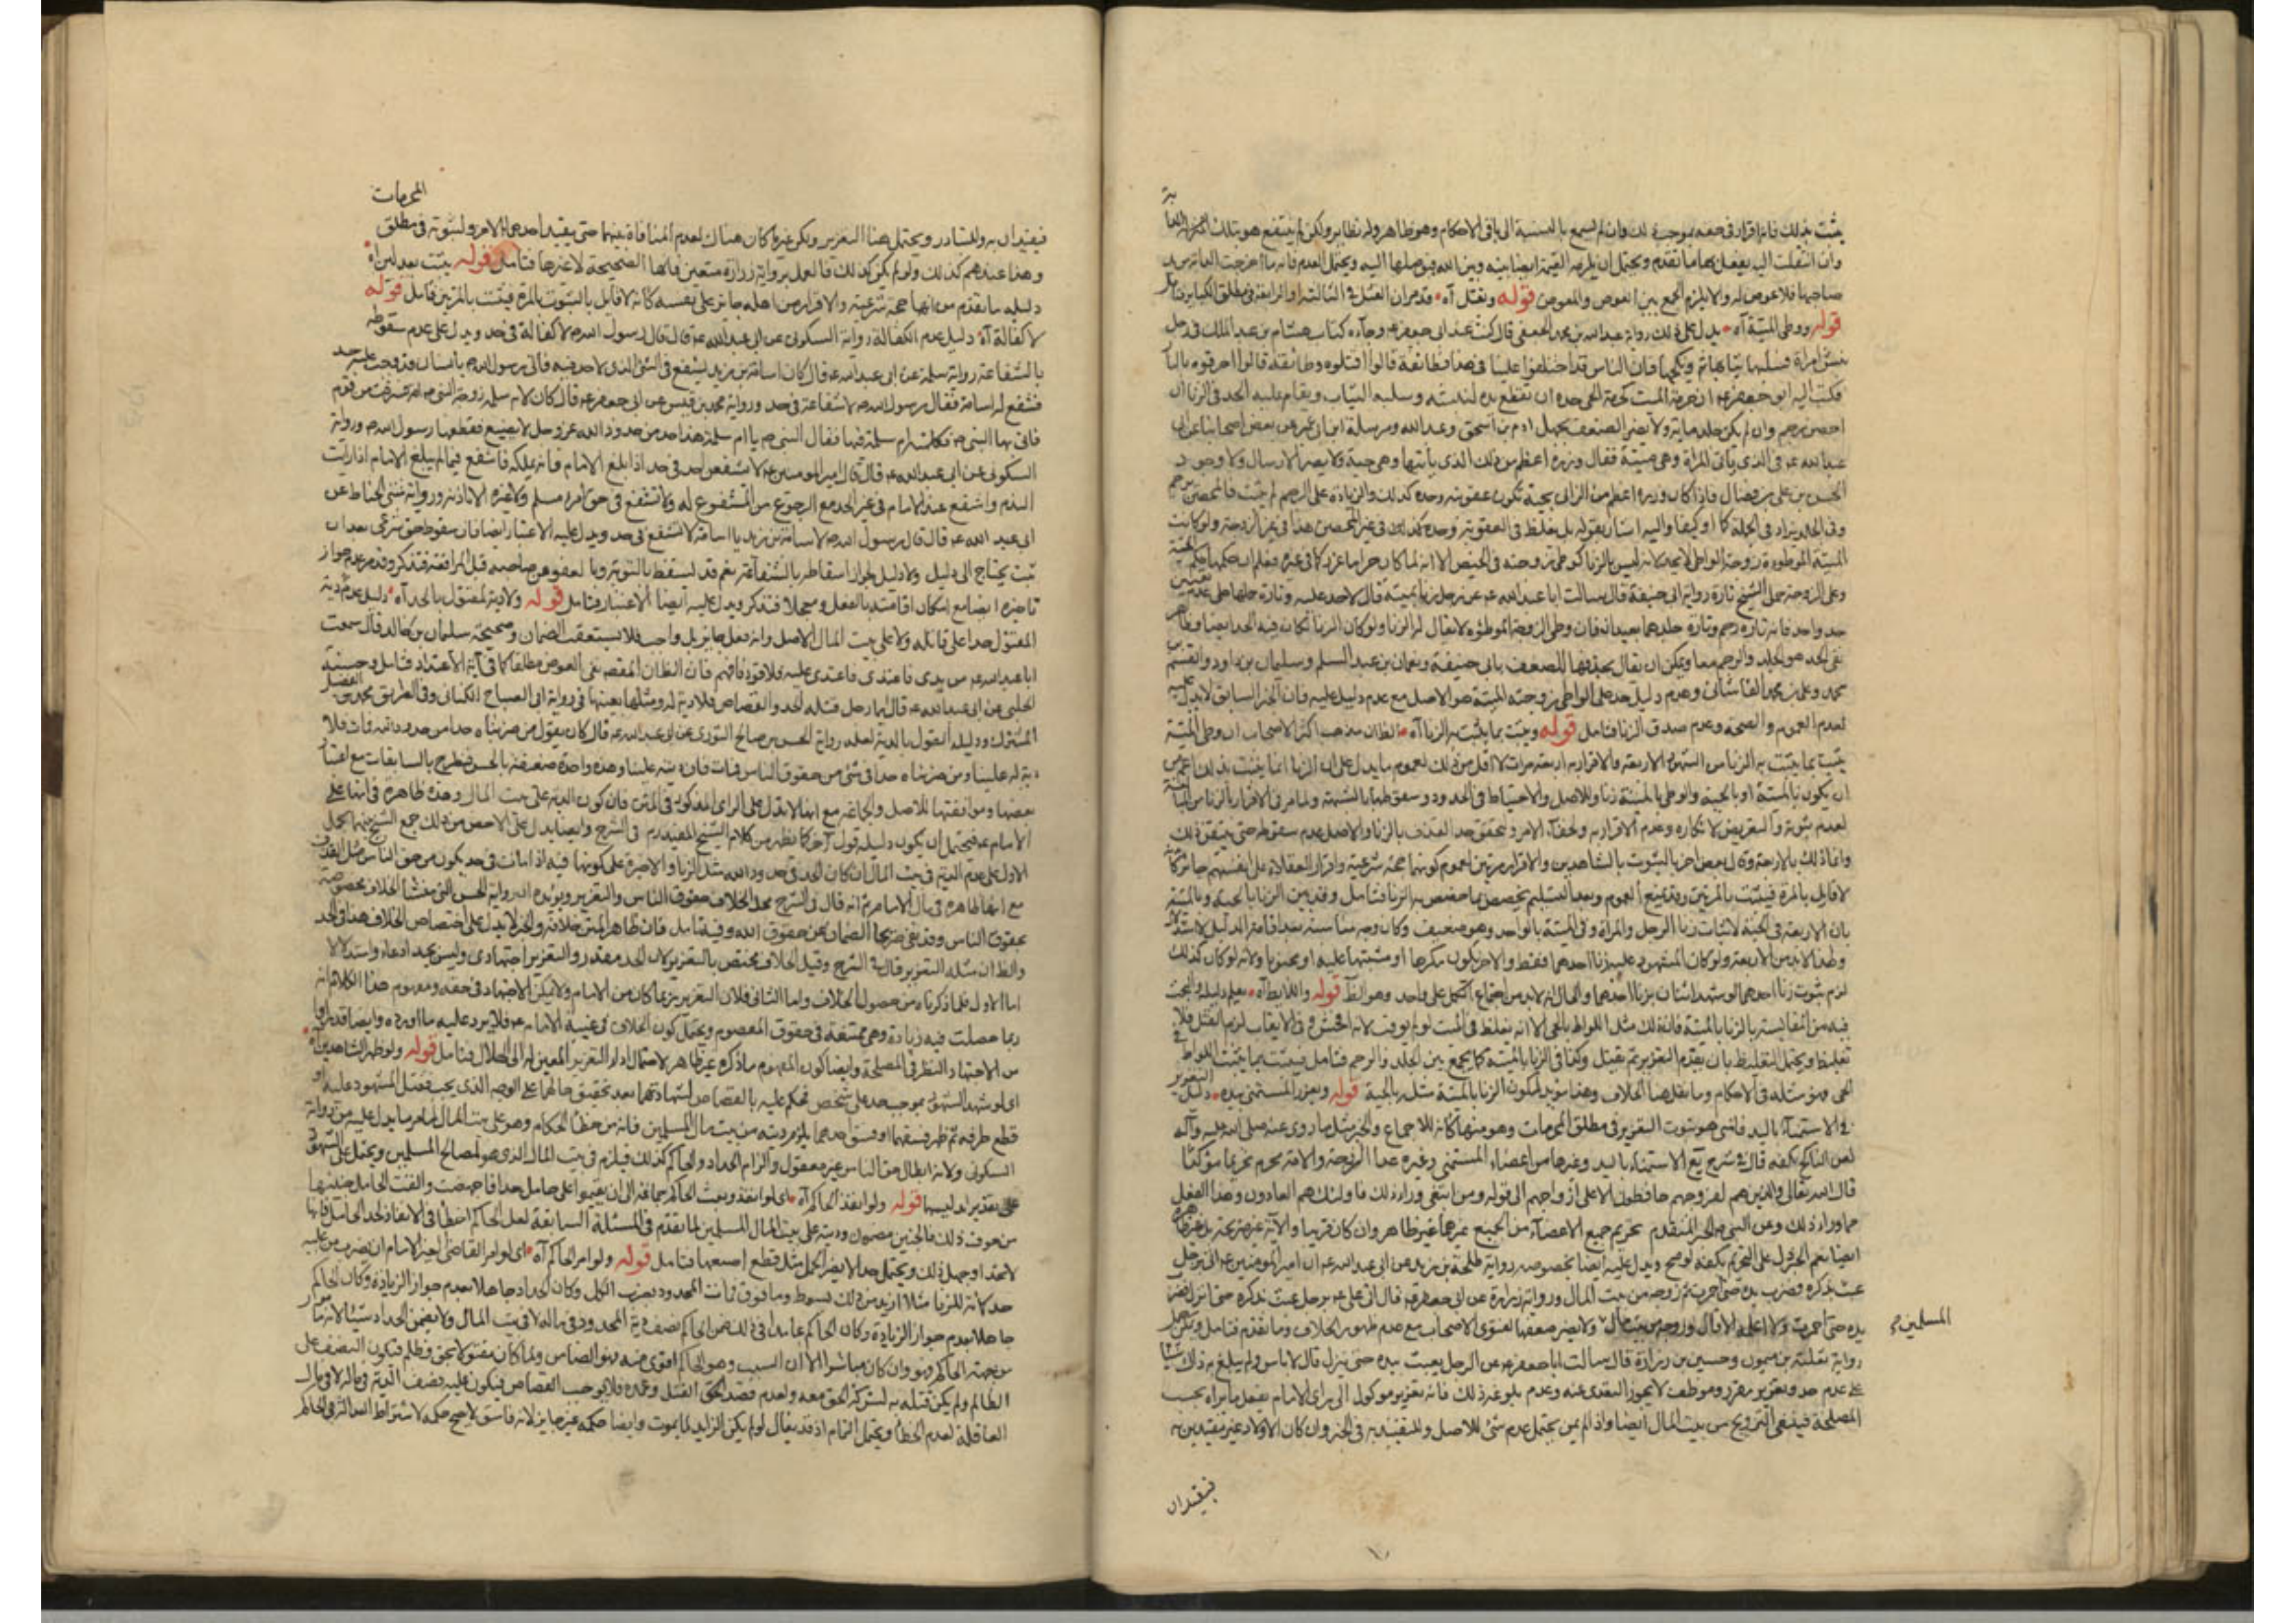 يثبت بذلك فانه اقرار في حقه بموجب ذلك وان لم يسمع بالنسبة الى باقي الاحكام وهو ظاهر وله نظاير ولكن لم ينتفع هو بتلك
وان انتقلت اليه يفعل بها ما تقدم ويحتمل ان يلزمه القيمة ايضا بينه وبين الله فيوصلها اليه ويحتمل العدم فانه ما اخرجت العين من يد
صاحبها فلا عوض له والا يلزم الجمع بين العوض والمعوض قوله ويقتل آه قد مر ان القتل في الثالثة او الرابعة في مطلق الكباير فتأمل
قوله ووطى الميتة آه يدل على ذلك رواية عبد الله بن محمد الجعفي قال كنت عند ابي جعفر ع وجاءه كتاب هشام بن عبد الملك في رجل
نبش امراة فسلبها ثيابها ثم نكحها فان الناس قد اختلفوا علينا في هذا فطائفة قالوا اقتلوه وطائفة قالوا احرقوه بالنار
فكتب اليه ابو جعفر ع ان حرمة الميت كحرمة الحي حده ان تقطع يده لنبشه وسلبه الثياب ويقام عليه الحد في الزنا ان
احصن رجم وان لم يكن جلد ماية ولا يضر الضعف بجهل ادم بن اسحق وعبد الله ومرسلة ابن ابي عمير عن بعض اصحابنا عن ابي
عبد الله ع في الذي ياتي المراة وهي ميتة فقال وزره اعظم من ذلك الذي ياتيها وهي حية ولا يضر الارسال ولا وجود
الحسن بن علي بن فضال فاذا كان وزره اعظم من الزاني بحية تكون عقوبته وحده كذلك والزيادة على الرجم لم يثبت فالمحصن يرجم
وفي الجلد يزاد في الجملة كما او كيفا واليه اشار بقوله بل يغلظ في العقوبة
الميتة الموطوءة زوجة الواطي لا يحد لانه ليس بالزنا كوطي زوجته في الحيض الا انه لما كان حراما عزر كما في غيره
وعلى الزوجة حمل الشيخ تارة رواية ابي حنيفة قال سالت ابا عبد الله ع عن رجل زنا بميتة قال لا حد عليه وتارة حملها على عدم تعيين
حد واحد فانه تارة رجم وتارة جلد
نفي الحد هو الجلد والرجم معا ويمكن ان يقال بحذفها للضعف بابي حنيفة ونعمان بن عبد السلم وسليمان بن داود والقسم بن
محمد وعلي بن محمد القاشاني وعدم دليل حد على الواطي زوجته الميتة هو الاصل مع عدم دليل عليه فان الخبر السابق لا يدل عليه
لعدم العموم والصحة وعدم صدق الزنا فتامل قوله ويثبت بما يثبت به الزنا آه الظان مذهب اكثر الاصحاب ان وطى الميتة
يثبت بما يثبت به الزنا من الشهود الاربعة والاقرار به اربع مرات لا اقل من ذلك لعموم ما يدل على ان الزنا انما يثبت بذلك اعم من
ان يكون بالميتة او بالحية والوطى بالميتة زنا وللاصل والاحتياط في الحدود وسقوطها بالشبهة
لعدم ثبوته والتعريض لانكاره وعدم الاقرار به ولخفاء الامر ويتحقق حد القذف بالزنا والاصل عدم سقوطه حتى يتيقن ذلك
وانما ذلك بالاربعة وقال بعض اخر بالثبوت بالشاهدين والاقرار مرتين لعموم كونهما حجة شرعية واقرار العقلاء على انفسهم جائز كانه
لا قايل بالمرة فيثبت بالمرتين وقد يمنع العموم وبعد التسليم يخصص بما خصص به الزنا فتامل وقد يبين الزنا بالحية وبالميتة
بان الاربعة في الحية لاثبات زنا الرجل والمراة وفي الميتة بالواحد وهو ضعيف وكان وجه مناسبة بعد اقامة الدليل لا استدلال
وطعنا لابد من الاربعة ولو كان المشهود عليه بزنا احدهما فقط والاخر يكون مكرها او مشتبها عليه او مجنونا ولانه لو كان كذلك
لزم ثبوت زنا احدهما لو شهد اثنان بزنا احدهما والحال انه لابد من اجتماع الكل على واحد وهو ايضا قوله واللايط آه يعلم دليله والبحث
فيه من المقايسة بالزنا بالميتة فانه ذلك مثل اللواط بالحي الا انه يغلظ في الميت
تغليظ ويحتمل التغليظ بان يقدم التعزير ثم يقتل وكذا في الزنا بالميتة كما يجمع بين الجلد والرجم فتامل فيثبت بما يثبت اللواط
الحي وهو مثله في الاحكام وما نقل هنا الخلاف وهذا مؤيد لكون الزنا بالميتة مثله بالحية قوله ويعزر المستمني بيده دليل التعزير
في الاستمناء باليد
لعن الناكح بكفه قال في شرح يع الاستمناء باليد وغيرها من اعضاء المستمني وغيره عدا الزوجة والامة محرم تحريما مؤكدا
قال الله تعالى والذين هم لفروجهم حافظون الا على ازواجهم الى قوله ومن ابتغى وراء ذلك فاولئك هم العادون وهذا الفعل
مما وراء ذلك وعن النبي ص الخبر المتقدم تحريم جميع الاعضاء من الجميع غيرهما غير ظاهر
ايضا نعم الخبر دل على التحريم بكفه لو صح ويدل عليه ايضا بخصوصه رواية طلحة بن زيد عن ابي عبد الله ع ان امير المومنين ع اتى برجل
عبث بذكره فضرب يده حتى احمرت ثم زوجه من بيت المال ورواية زرارة عن ابي جعفر ع قال اتى علي ع برجل عبث بذكره حتى انزل فضرب
يده حتى احمرت ولا اعلمه الا قال وزوجه من بيت مال ولا يضر ضعفها لفتوى الاصحاب مع عدم ظهور الخلاف وما تقدم فتامل
المسلمين
رواية ثعلبة بن ميمون وحسين بن زرارة قال سالت ابا جعفر ع عن الرجل يعبث بيده حتى ينزل قال لا باس ولم يبلغ به ذلك شيئا
على عدم حد وتعزير مقرر وموظف لا يجوز التعدي عنه وعدم بلوغه ذلك فانه تعزير موكول الى راي الامام يفعل ما يراه بحسب
المصلحة فينبغي التزويج من بيت المال ايضا
فيقيدان
المحرمات
فيقيدان به والمتبادر ويحتمل هنا التعزير ولكن غيرها كان هناك لعدم المنافاة بينهما حتى يقيد احدهما بالاخر ولثبوته في مطلق
وهذا عندهم كذلك ولو لم يكن كذلك فالعمل برواية زرارة متعين فانها الصحيحة لا غيرها فتامل قوله يثبت بعدلين آه
دليله ما تقدم من انها حجة شرعية والاقرار من اهله جايز على نفسه كانه لا قايل بالثبوت بالمرة فيثبت بالمرتين فتامل قوله
لا كفالة آه دليل عدم الكفالة رواية السكوني عن ابي عبد الله ع قال قال رسول الله ص لا كفالة في حد ويدل على عدم سقوطه
بالشفاعة رواية سلمة عن ابي عبد الله ع قال كان اسامة بن زيد يشفع في الشيء الذي لا حد فيه فاتى رسول الله ص بانسان قد وجب عليه حد
فشفع له اسامة فقال رسول الله ص لا شفاعة في حد ورواية محمد بن قيس عن ابي جعفر ع قال كان لام سلمة زوجة النبي ص امة فسرقت من قوم
فاتى بها النبي ص فكلمته ام سلمة فيها فقال النبي ص يا ام سلمة هذا حد من حدود الله عز وجل لا يضيع فقطعها رسول الله ص ورواية
السكوني عن ابي عبد الله ع قال قال امير المومنين ع لا يشفعن احد في حد اذا بلغ الامام فانه يملكه فاشفع فيما لم يبلغ الامام اذا رايت
الندم واشفع عند الامام في غير الحد مع الرجوع من المشفوع له ولا تشفع في حق امرء مسلم ولا غيره الا باذنه ورواية مثنى الحناط عن
ابي عبد الله ع قال قال رسول الله ص لاسامة بن زيد يا اسامة لا تشفع في حد ويدل عليه الاعتبار ايضا فان سقوط حق شرعي بعد ان
ثبت يحتاج الى دليل ولا دليل لجواز اسقاطه بالشفاعة نعم قد يسقط بالتوبة وبالعفو عن صاحبه قبل المرافعة فتذكر وقد مر عدم جواز
تاخيره ايضا مع امكان اقامته بالفعل ومجملا فتذكر ويدل عليه ايضا الاعتبار فتامل قوله ولا دية لمقتول بالحد آه دليل عدم دية
المقتول حدا على قاتله ولا على بيت المال الاصل وانه فعل جايز بل واجب فلا يستعقب الضمان وصحيحة سليمان بن خالد قال سمعت
ابا عبد الله ع من بدى فاعتدى فاعتدى عليه فلا قود له فافهم فان الظان المقصود نفي العوض مطلقا كما في آية الاعتداء فتامل وحسنة
الحلبي عن ابي عبد الله ع قال ايما رجل قتله الحد والقصاص فلا دية له ومثلها بعينها في رواية ابي الصباح الكناني وفي الطريق محمد بن الفضيل
المشترك ودليله القول بالدية لعله رواية الحسن بن صالح الثوري عن ابي عبد الله ع قال كان يقول من ضربناه حدا من حدود الله فمات فلا
دية له علينا ومن ضربناه حدا في شيء من حقوق الناس فمات فان ديته علينا وهذه واحدة ضعيفة بالحسن فتطرح بالسابقات مع اعتبار
بعضها وموافقتها للاصل والجماعة مع انها لا تدل على الراي المذكور في المتن فان كون الدية على بيت المال وهذه ظاهرة في انها على
الامام ع فيحتمل ان يكون دليله قول آخر كما يظهر من كلام الشيخ المفيد ره في الشرح
الاول على عدم الدية في بيت المال ان كان الحد في حدود الله مثل الزنا والاخيرة على كونها فيه اذا مات في حد يكون من حق الناس مثل القذف
مع انها ظاهرة في مال الامام ثم انه قال في الشرح محل الخلاف حقوق الناس والتعزير ويؤيده انه رواية الحسن التي منشا الخلاف مخصوصة
بحقوق الناس وقد نفى صريحا الضمان عن حقوق الله وفيه تامل فان ظاهر المتن خلافه والخبر لا يدل على اختصاص الخلاف هنا في الحد
والظ ان مثله التعزير قال في الشرح وقيل الخلاف مختص بالتعزير لان الحد مقدر والتعزير اجتهادي وليس بجيد ادعاء واستدلالا
اما الاول فلما ذكرناه من حصول الخلاف واما الثاني فلان التعزير ربما كان من الامام ولا يمكن الاجتهاد في حقه ومفهوم هذا الكلام انه
ربما حصلت فيه زيادة وهي ممتنعة في حقوق المعصوم ويحتمل كون الخلاف في غيبة الامام ع فلا يرد عليه ما اورده
من الاجتهاد النظر في المصلحة وايضا كون المفهوم ما ذكره غير ظاهر فتامل قوله ولو ظهر الشاهدين آه
اي لو شهد الشهود بموجب حد على شخص فحكم عليه بالقصاص لشهادتهما بعد تحقيق حالهما على الوجه الذي يجب فقتل المشهود عليه او
قطع طرفه ثم ظهر فسقهما او فسق احدهما يلزم ديته من بيت مال المسلمين فانه من خطا الحكام وهو على بيت المال لما مر ما يدل عليه من رواية
السكوني ولانه ابطال حق الناس غير معقول والزام الحداد والحاكم كذلك فيلزم في بيت المال الذي هو لمصالح المسلمين ويحتمل على الشهود
على تقدير تدليسهما قوله ولو انفذ الحاكم آه اي لو انفذ وبعث الحاكم جماعة الى ان يقيموا على حامل حدا فاجهضت والقت الحامل جنينها
من خوف ذلك فالجنين مضمون وديته على بيت المال المسلمين لما تقدم في المسئلة السابقة لعل الحاكم اخطا في الانفاذ لحد الحامل فانها
لا تحد او جهل ذلك ويحتمل حد الا يضر الحمل مثل قطع اصبعها فتامل قوله ولو امر الحاكم آه اي لو امر القاضي لغير الامام ان ضرب من عليه
حد كانه للزنا مثلا ازيد من ذلك بسوط وما فوق فمات المحدود بضرب الكل وكان الحداد جاهلا بعدم جواز الزيادة وكان الحاكم
جاهلا بعدم جواز الزيادة وكان الحاكم عامدا في ذلك ضمن الحاكم نصف دية المحدود في ماله لا في بيت المال ولا يضمن الحداد شيئا لانه مامور
من جهة الحاكم وهو وان كان مباشرا الا ان السبب وهو الحاكم اقوى منه فهو الضامن ولما كان مقتولا بحق وظلم فيكون النصف على
الظالم ولم يكن قتله به لشركة الحق معه ولعدم قصد الحق القتل وعمده فلا يوجب القصاص فيكون عليه نصف الدية في ماله لا في مال
العاقلة لعدم الخطا ويحتمل التمام اذ قد يقال لو لم يكن الزايد لما يموت وايضا حكمه غير جايز لانه فاسق لا يصح حكمه لاشتراط العدالة في الحاكم